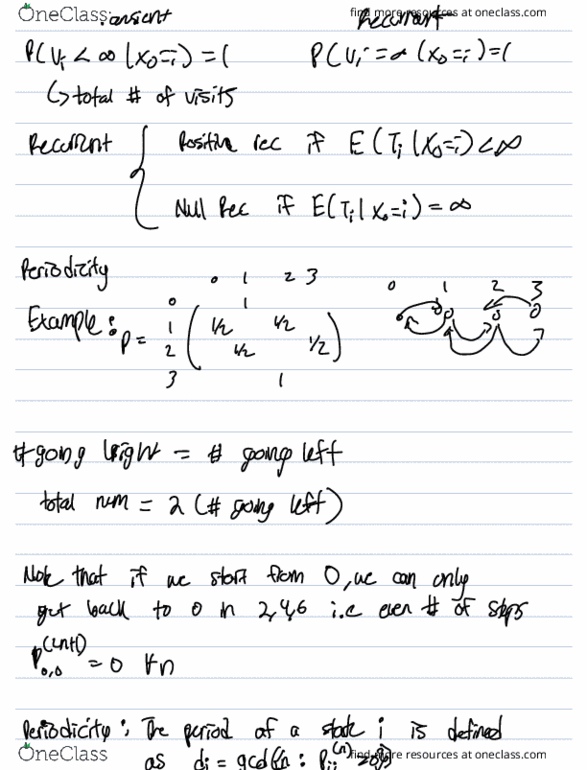 OneClass
find more resources at oneclass.com
Transient Recurrent
P(Vi < ∞ | X0=i) = 1 P(Vi = ∞ | X0=i) = 1
↳ total # of visits
Recurrent { Positive rec if E(Ti | X0=i) < ∞
Null Rec if E(Ti | X0=i) = ∞
Periodicity
0 1 2 3
0 1 2 3
Example: P =
0 1
1 1/2 1/2
2 1/2 1/2
3 1
#going right = # going left
total num = 2 (# going left)
Note that if we start from 0, we can only
get back to 0 in 2,4,6 i.e even # of steps
P0,0(2n+1) = 0 ∀n
Periodicity: The period of a state i is defined
as di = gcd{n : Pii(n) >0}
OneClass
find more resources at oneclass.com